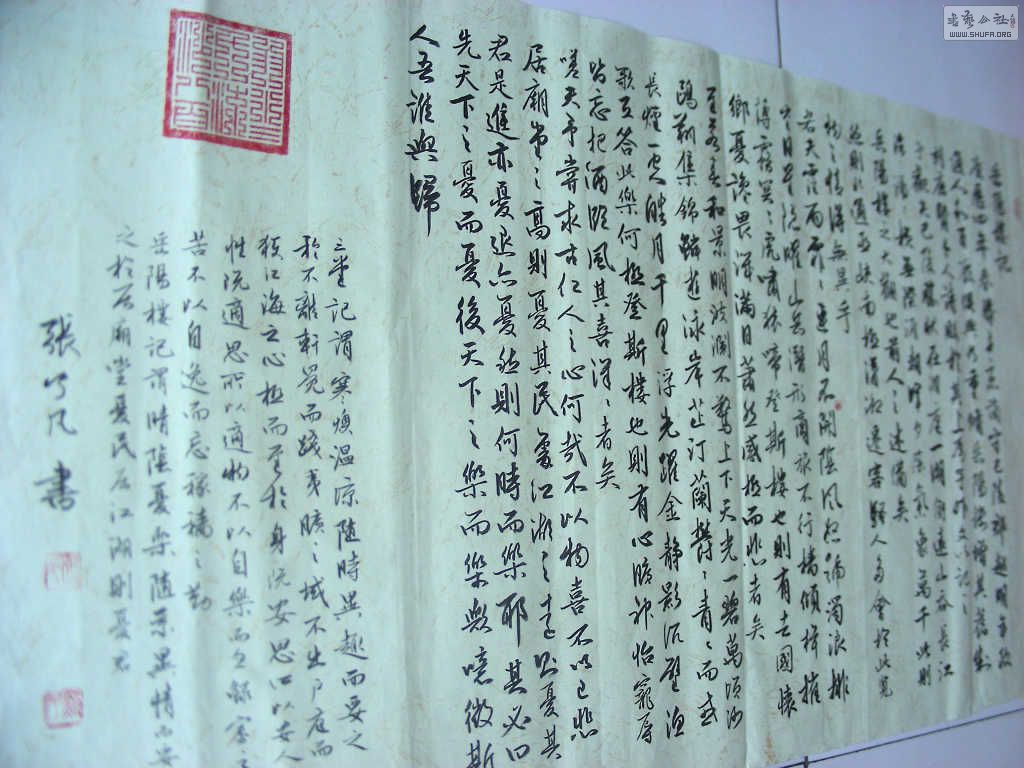 岳陽樓記
慶曆四年春滕子京謫守巴陵郡越明年政
通人和百廢俱興乃重修岳陽樓增其舊制
刻唐賢今人詩賦於其上屬予作文以記之
予觀夫巴陵勝狀在洞庭一湖銜遠山吞長江
浩浩湯湯橫無際涯朝暉夕陰氣象萬千此則
岳陽樓之大觀也前人之述備矣
然則北通巫峽南極瀟湘遷客騷人多會於此覽
物之情得無異乎
若夫霪雨霏〻連月不開陰風怒號濁浪排
空日星隱曜山岳潛形商旅不行檣傾楫摧
薄暮冥〻虎嘯猿啼登斯樓也則有去國懷
鄉憂讒畏譏滿目蕭然感極而悲者矣
至若春和景明波瀾不驚上下天光一碧萬頃沙
鷗翔集錦鱗游泳岸芷汀蘭鬱〻青〻而或
長煙一空皓月千里浮光躍金靜影沉璧漁
歌互答此樂何極登斯樓也則有心曠神怡寵辱
皆忘把酒臨風其喜洋〻者矣
嗟夫予嘗求古仁人之心何哉不以物喜不以己悲
居廟堂之高則憂其民處江湖之遠則憂其
君是進亦憂退亦憂然則何時而樂耶其必曰
先天下之憂而憂後天下之樂而樂歟噫微斯
人吾誰與歸
記謂寒燠溫涼隨時異趣而要之
於不離軒冕而踐夷曠之域不出戶庭而
獲江海之心極而至於身既安思所以安人
性既適思所以適物不以自樂而忘鰥寡之
苦不以自逸而忘稼穡之勤
岳陽樓記謂晴陰憂樂隨景異情而要
之於居廟堂憂民居江湖則憂君
張了凡書
書藝公社
WWW.SHUFA.ORG